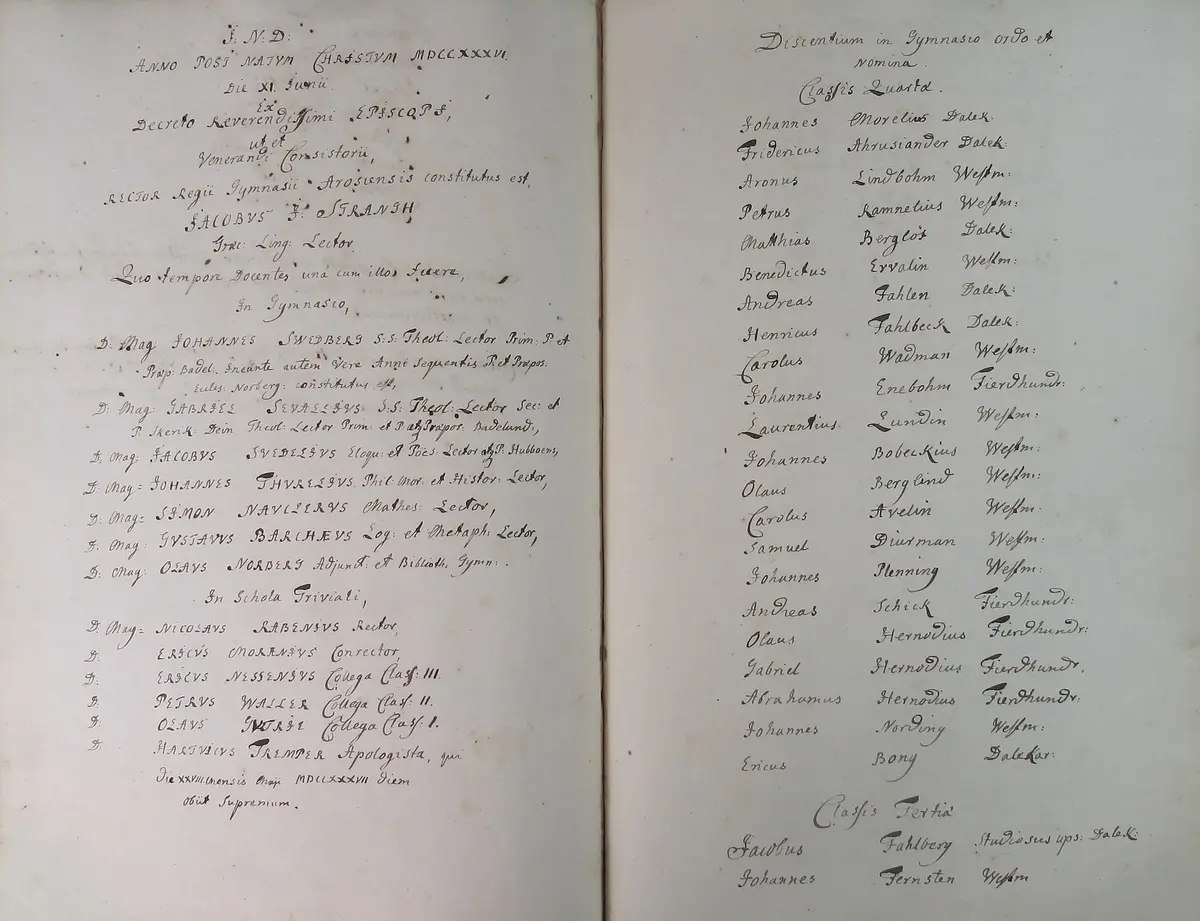 I. N. D:
ANNO POST NATVM CHRISTVM MDCCXXXVI.
Die XI. Junii.
Ex
Decreto Reverendissimi EPISCOPI,
ut et
Venerandi Consistorii,
RECTOR Regii Gymnasii Arosiensis constitutus est,
JACOBVS J: STRANGH
Græc: Ling: Lector
Quo tempore Docentes una cum illo fuere,
In Gymnasio,
D: Mag JOHANNES SWEDBERG S:S: Theol: Lector Prim: P. et
Præp: Badel: Ineunte autem Vere Anni Sequentis P. et Præpos:
Eccles: Norberg: constitutus est,
D: Mag GABRIEL SEVALLIVS S:S: Theol: Lector Sec: et
P. Skerik. Dein Theol: Lector Prim: et P. atq Præpos: Badelund:,
D. Mag: JACOBVS SVEDELIVS Eloqu: et Poës: Lector atq P. Hubboens,
D: Mag= JOHANNES THVRELIVS Phil: Mor: et Histor: Lector,
D: Mag= SIMON NAVCLERVS Mathes: Lector,
D. Mag: GVSTAVVS BARCHÆVS Log: et Metaph: Lector,
D: Mag: OLAVS NORBERG Adjunct: et Biblioth. Gymn:.
In Schola Triviali,
D: Mag= NICOLAVS RABENIVS Rector,
D: ERICVS MORANIVS Conrector,
D: ERICVS NESSENIVS Collega Class: III.
D: PETRVS WALLER Collega Class: II.
D: OLAVS GVTRIE Collega Class: I.
D: HARTVICVS TREMPER Apologista, qui
die XXVIII mensis Maji MDCCXXXVII diem
obiit Supremum.
Discentium in Gymnasio ordo et
Nomina.
Classis Quarta.
Johannes Morelius Dalek.
Fridericus Ahrusiander Dalek:
Aronus Lindbohm Westm:
Petrus Ramnelius Westm:
Matthias Berglöf Dalek:
Benedictus Ervalin Westm:
Andreas Fahlen Dalek:
Henricus Fahlbeck Dalek:
Carolus Wadman Westm:
Johannes Enebohm Fierdhundr:
Laurentius Lundin Westm:
Johannes Bobeckius Westm:
Olaus Berglind Westm:
Carolus Avelin Westm:
Samuel Diurman Westm:
Johannes Plenning Westm:
Andreas Schick Fierdhundr:
Olaus Hernodius Fierdhundr:
Gabriel Hernodius Fierdhundr.
Abrahamus Hernodius Fierdhundr:
Johannes Nording Westm:
Ericus Bong Dalekar:
Classis Tertia
Jacobus Fahlberg Studiosus ups: Dalek:
Johannes Fernsten Westm